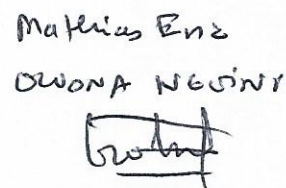 Mathias Eric
OWONA NGUINI